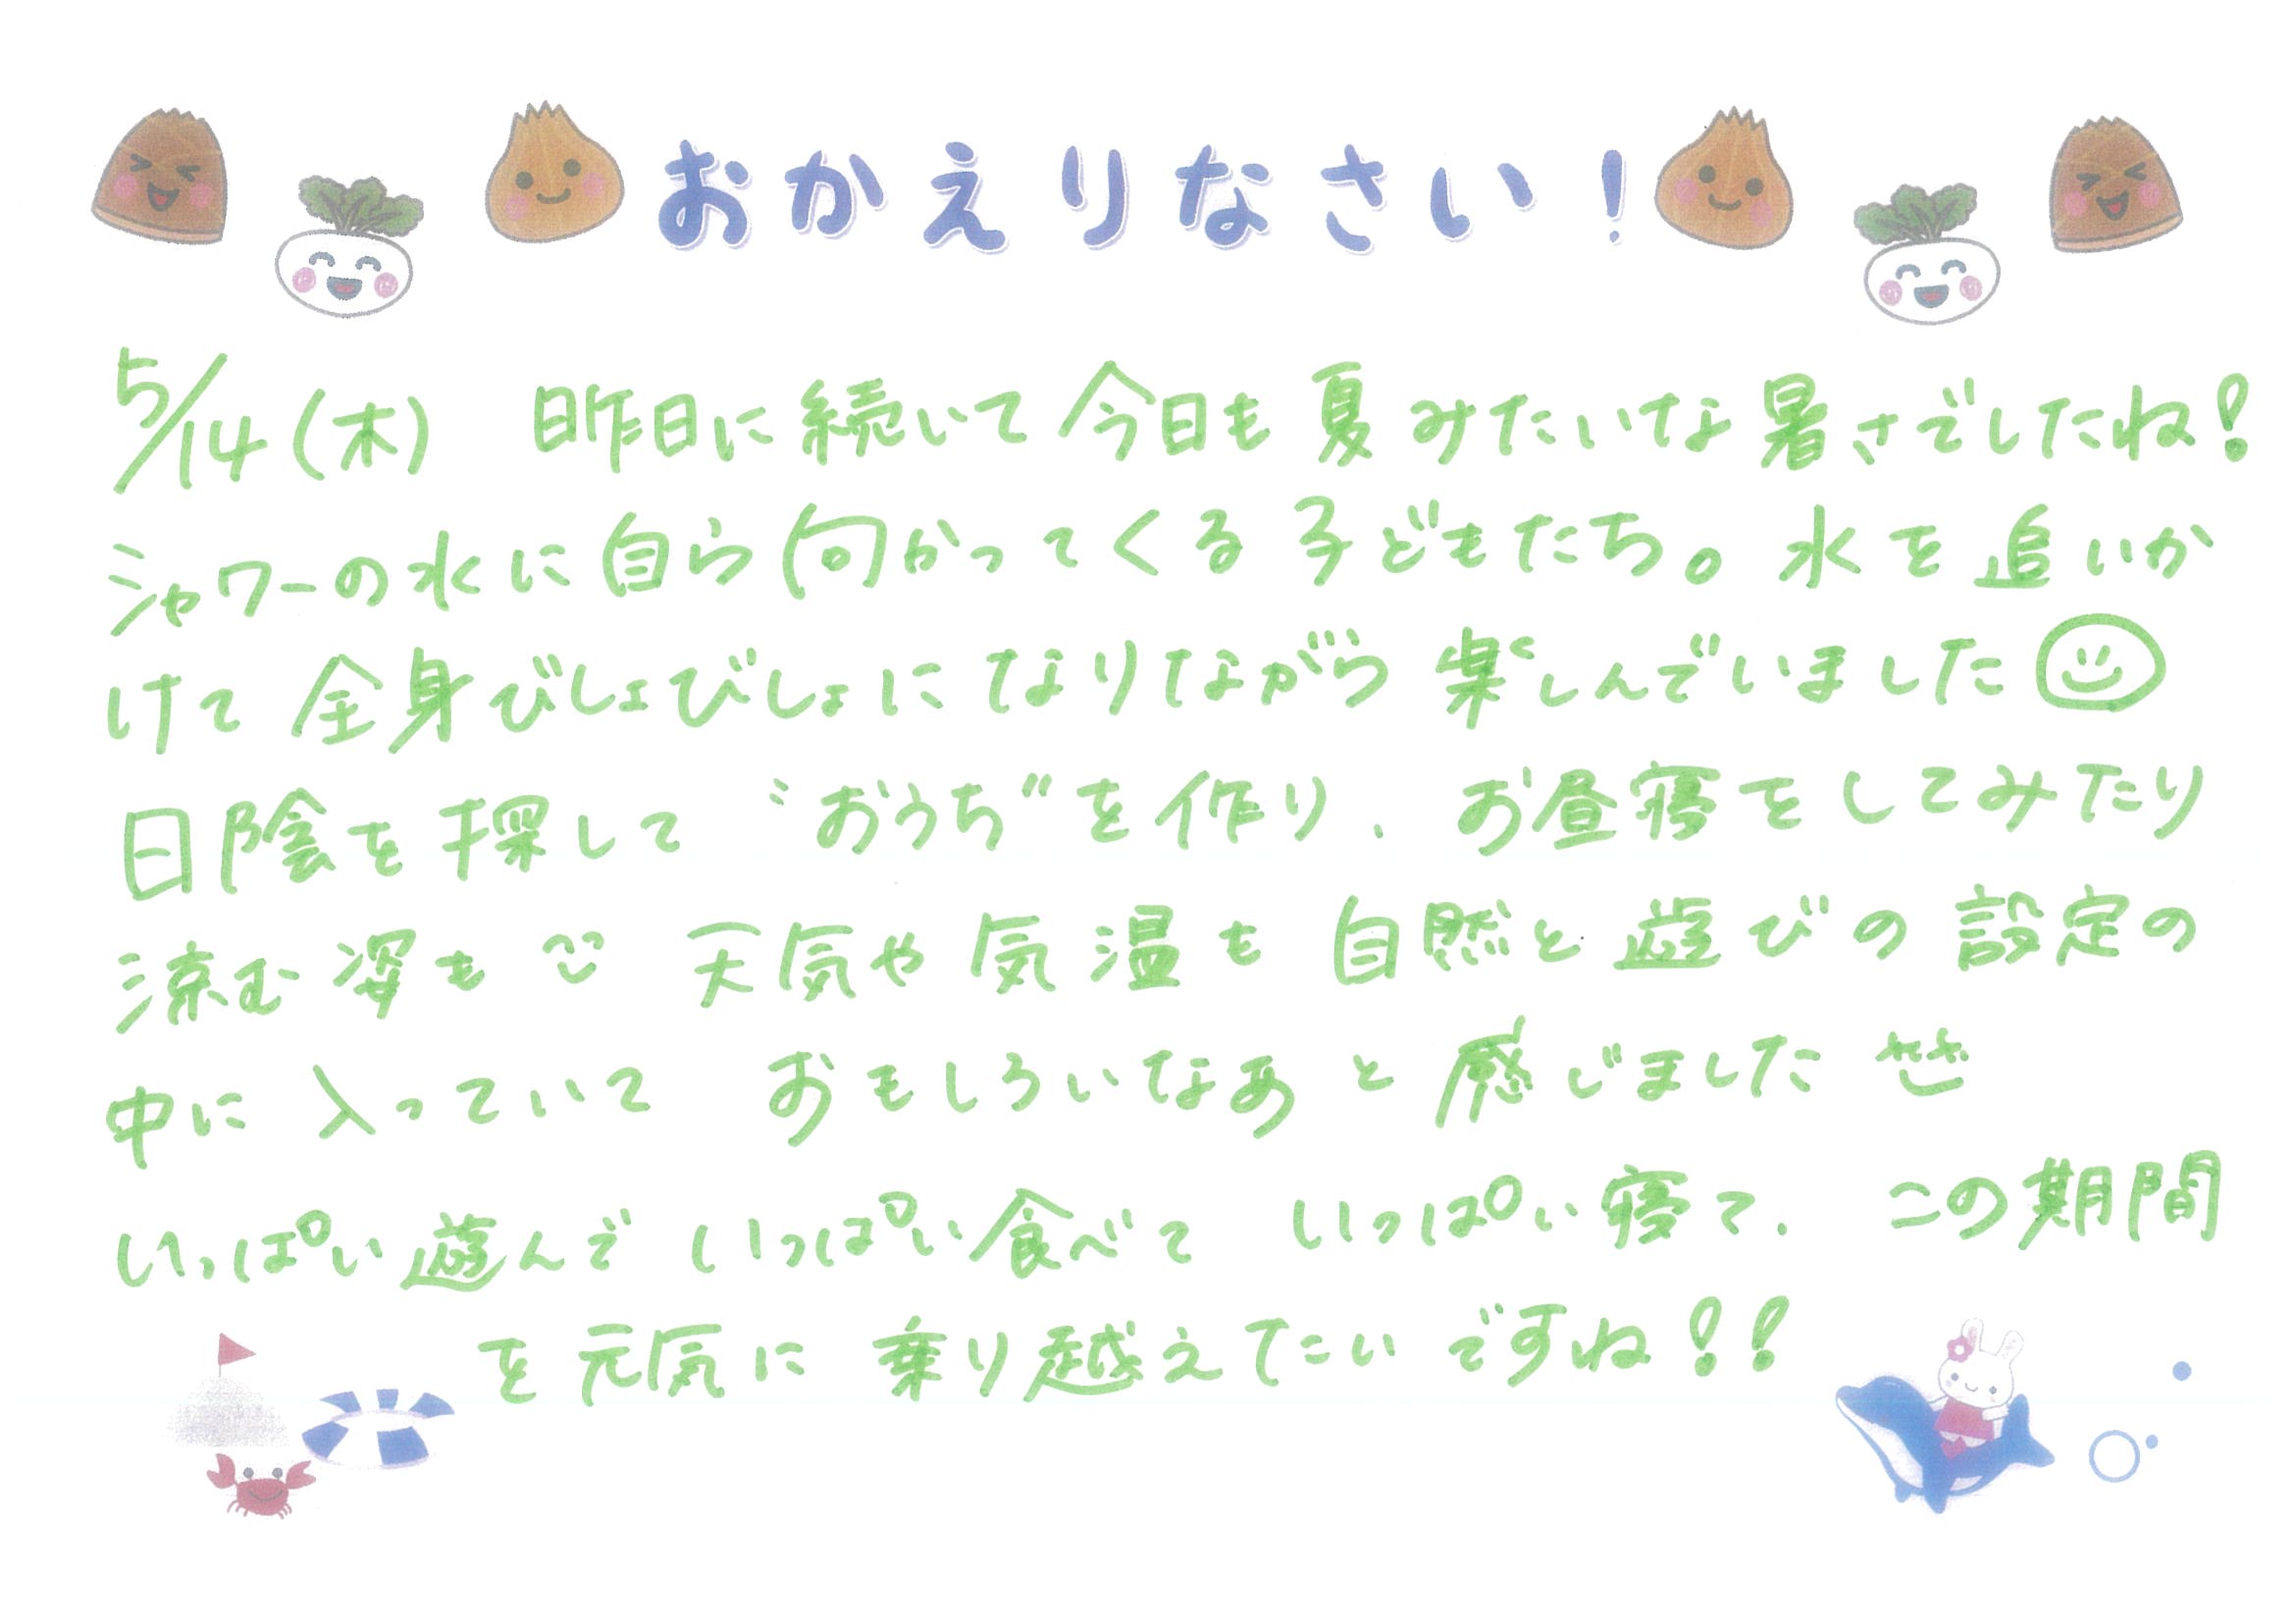 おかえりなさい！
5/14(木) 昨日に続いて今日も夏みたいな暑さでしたね！
シャワーの水に自ら向かってくる子どもたち。水を追いか
けて全身びしょびしょになりながら楽しんでいました
日陰を探して〝おうち〟を作り、お昼寝をしてみたり
涼む姿も 天気や気温も自然と遊びの設定の
中に入っていて おもしろいなあと感じました
いっぱい遊んで いっぱい食べて いっぱい寝て、この期間
を元気に乗り越えたいですね！！